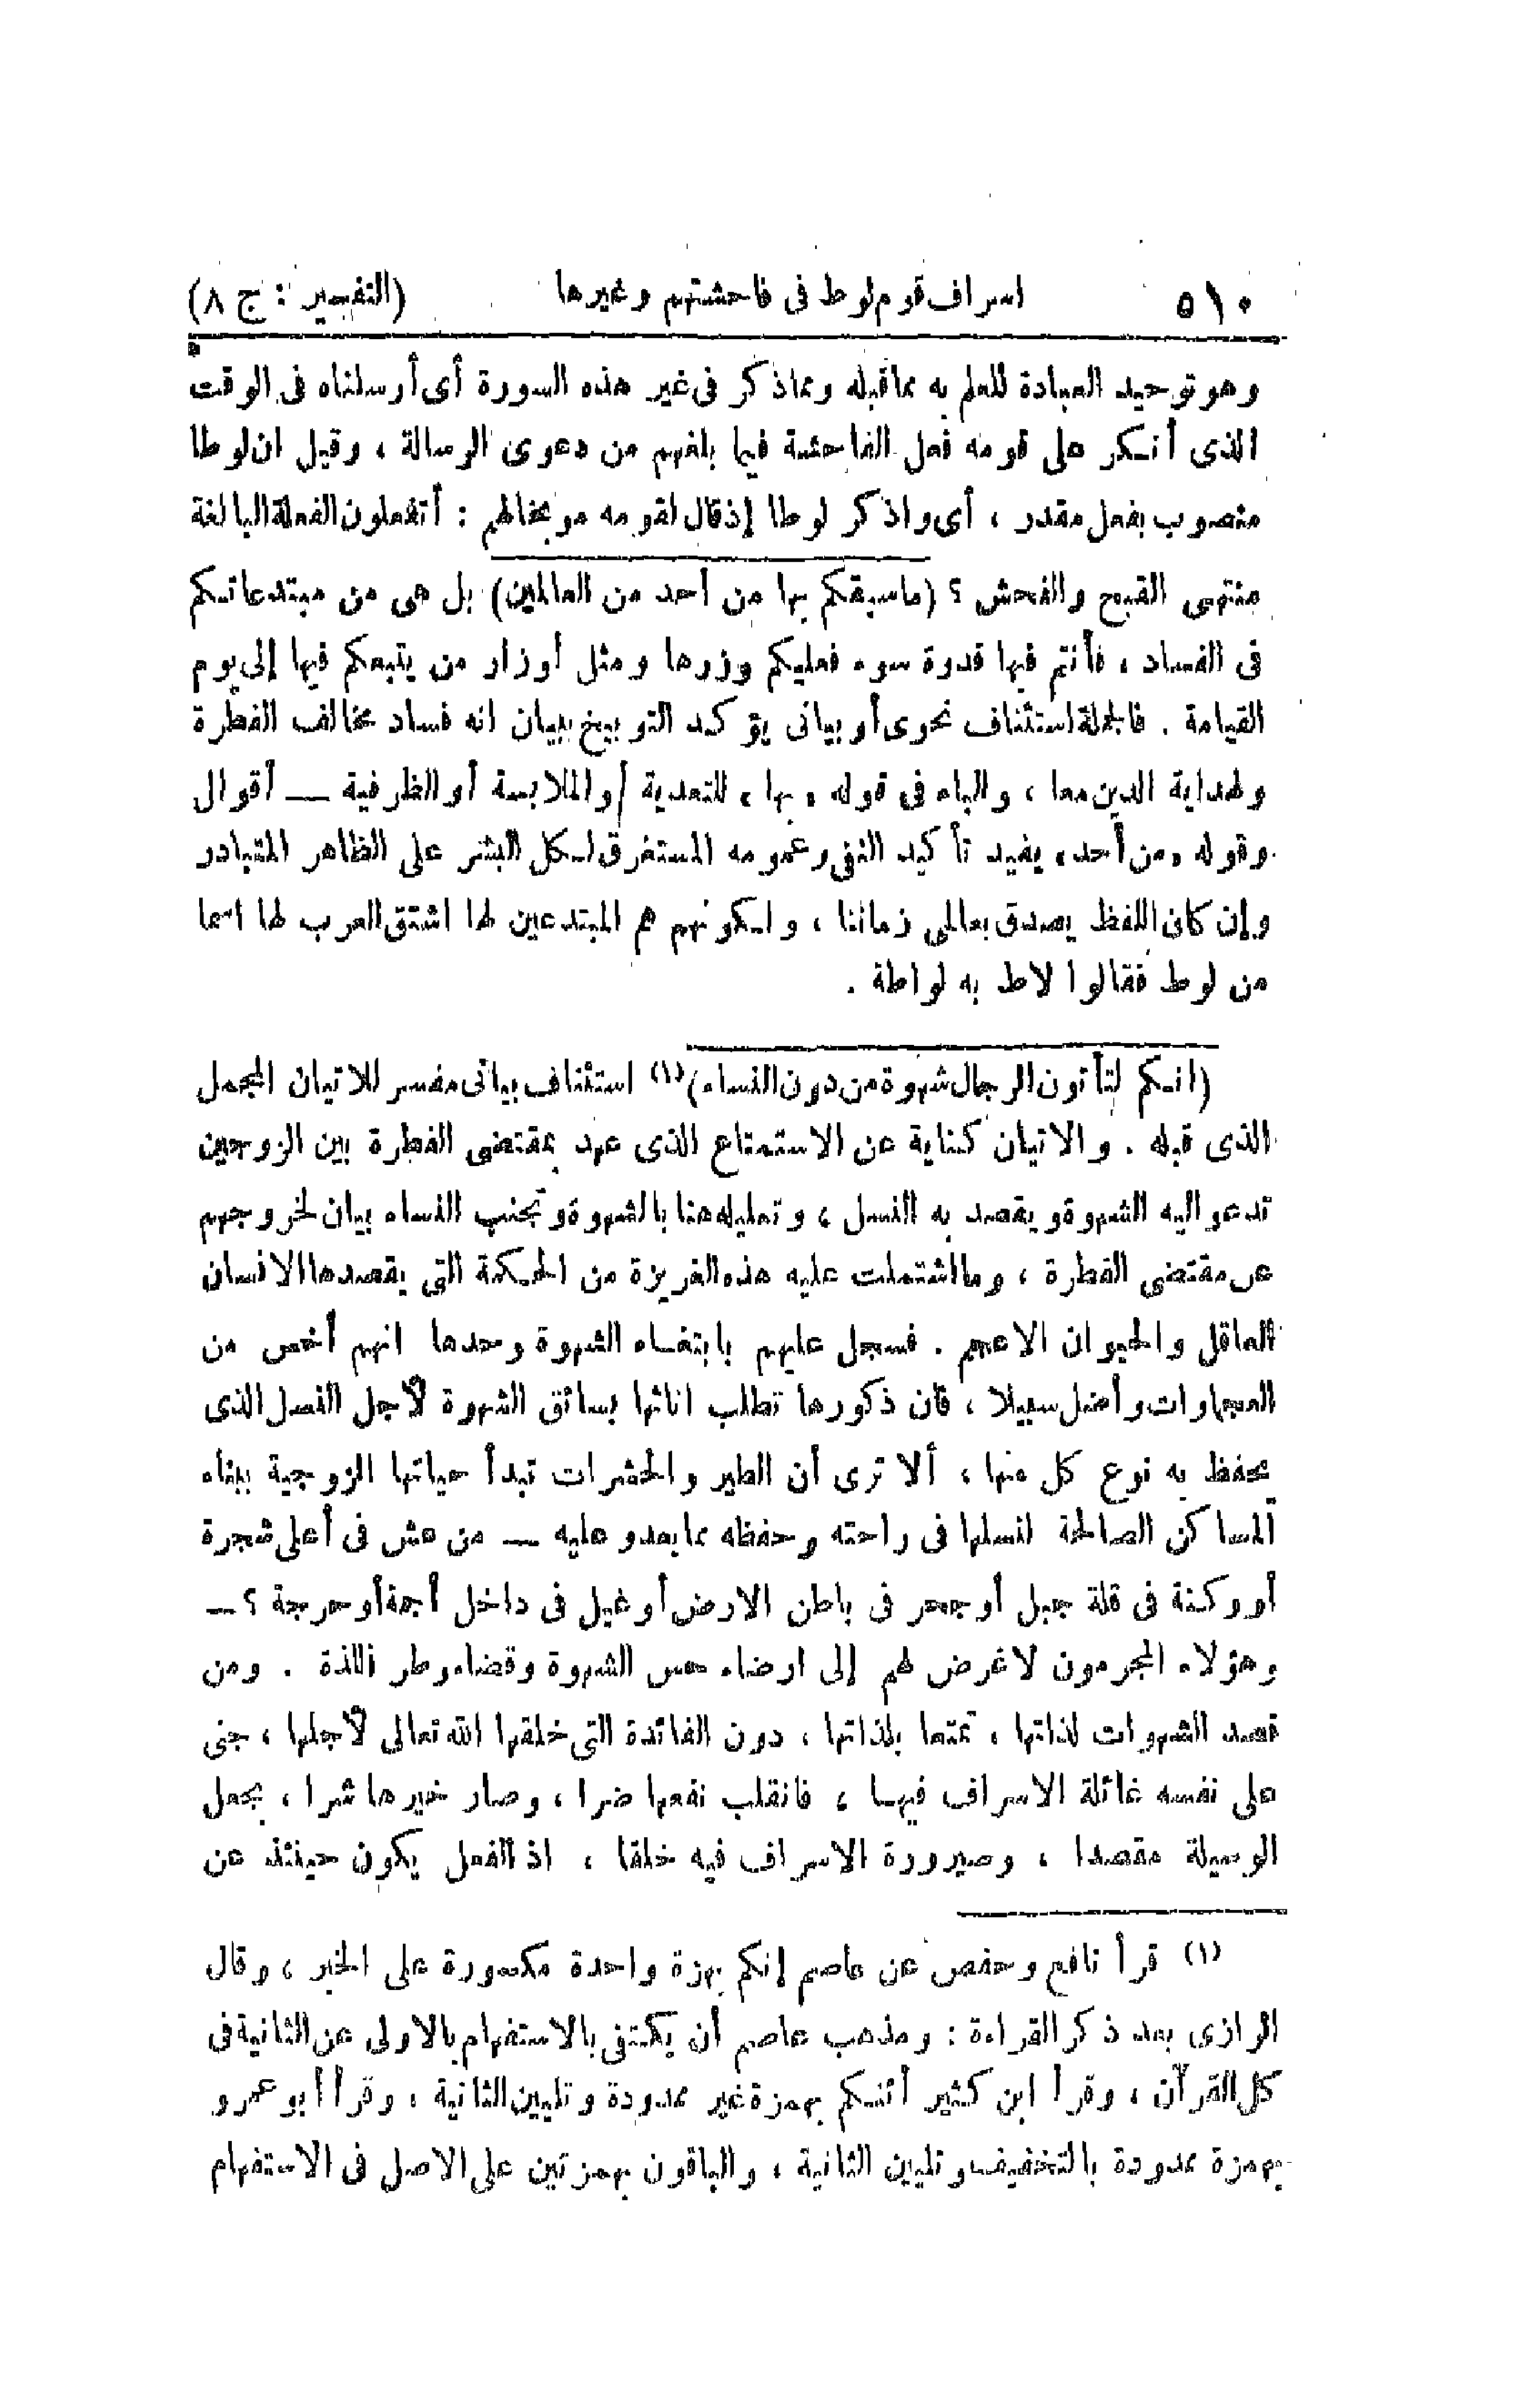 ٥١٠ اسراف قوم لوط فى فاحشتهم وغيرها (التفسير : ج ٨)
وهو توحيد العبادة للعلم به مما قبله ومما ذكر فى غير هذه السورة أى أرسلناه فى الوقت
الذى أنكر على قومه فعل الفاحشة فيما بلغهم من دعوى الرسالة ، وقيل ان لوطا
منصوب بفعل مقدر ، أى واذكر لوطا إذ قال لقومه موبخا لهم : أتفعلون الفعلة البالغة
منتهى القبح والفحش ؟ (ما سبقكم بها من أحد من العالمين) بل هى من مبتدعاتكم
فى الفساد ، فأنتم فيها قدوة سوء فعليكم وزرها ومثل أوزار من يتبعكم فيها إلى يوم
القيامة . فالجملة استئناف نحوى أو بيانى يؤكد التوبيخ ببيان انه فساد مخالف الفطرة
ولهداية الدين معا ، والباء فى قوله « بها » للتعدية أو الملابسة أو الظرفية — أقوال
وقوله « من أحد » يفيد تأكيد النفى وعمومه المستغرق لكل البشر على الظاهر المتبادر
وإن كان اللفظ يصدق بعالمى زماننا ، ولكونهم هم المبتدعين لها اشتق العرب لها اسما
من لوط فقالوا لاط به لواطة .
(انكم لتأتون الرجال شهوة من دون النساء) (١) استئناف بيانى مفسر للاتيان المجمل
الذى قبله . والاتيان كناية عن الاستمتاع الذى عهد بمقتضى الفطرة بين الزوجين
تدعو اليه الشهوة ويقصد به النسل ، وتعليله هنا بالشهوة وتجنب النساء بيان لخروجهم
عن مقتضى الفطرة ، وما اشتملت عليه هذه الغريزة من الحكمة التى يقصدها الانسان
العاقل والحيوان الاعجم . فسجل عليهم بابتغاء الشهوة وحدها انهم أخس من
العجماوات وأضل سبيلا ، فان ذكورها تطلب اناثها بسائق الشهوة لأجل النسل الذى
يحفظ به نوع كل منها ، ألا ترى أن الطير والحشرات تبدأ حياتها الزوجية ببناء
المساكن الصالحة لنسلها فى راحته وحفظه مما يعدو عليه — من عش فى أعلى شجرة
أو وكنة فى قلة جبل أو جحر فى باطن الارض أو غيل فى داخل أجمة أو حرجة ؟ —
وهؤلاء المجرمون لا غرض لهم إلى ارضاء حس الشهوة وقضاء وطر اللذة . ومن
قصد الشهوات لذاتها ، تمتعا بلذاتها ، دون الفائدة التى خلقها الله تعالى لأجلها ، جنى
على نفسه غائلة الاسراف فيها ، فانقلب نفعها ضرا ، وصار خيرها شرا ، بجعل
الوسيلة مقصدا ، وصيرورة الاسراف فيه خلقا ، اذ الفعل يكون حينئذ عن
(١) قرأ نافع وحفص عن عاصم إنكم بهمزة واحدة مكسورة على الخبر ، وقال
الرازى بعد ذكر القراءة : ومذهب عاصم أن يكتفى بالاستفهام بالاولى عن الثانية فى
كل القرآن ، وقرأ ابن كثير أئنكم بهمزة غير ممدودة وتليين الثانية ، وقرأ أبو عمرو
بهمزة ممدودة بالتخفيف وتليين الثانية ، والباقون بهمزتين على الاصل فى الاستفهام